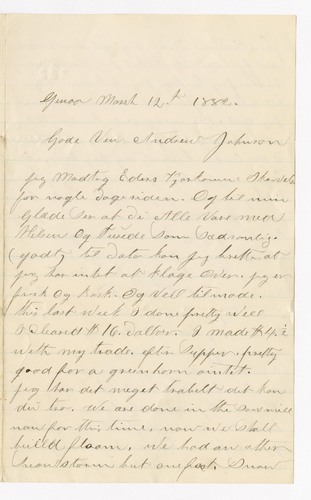 Genoa March 12th 1882.
Gode Ven Andrew Johnson
jeg Modtog Eders
for nogle dage siden. Og til min
Glæde Ser at di Alle Vare med
Helsen Og som Sædvanlig.
(godt) til dato kan jeg at
jeg har intet at Klage Over. jeg er
frisk Og Rask. Og Vell tilmode.
this last week I done pretty well
I Cleared $ 16. dallor. I made $4.
with my trade. after Supper. pretty
good for a greenhorn aintet.
jeg har det meget trabelt det kan
di tro. We are done in the Sawmill
now for this time, now we Shall
build floom, we had an other
Snow storm but one foot. Snow